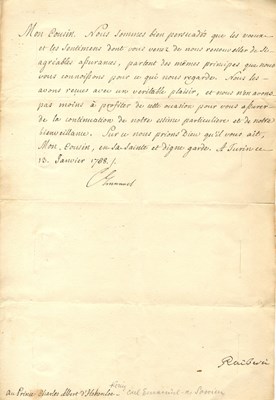 Mon Cousin. Nous sommes bien persuadés que les voeux
et les Sentimens dont vous venez de nous renouveller de si
agréables assurances, partent des mêmes principes que nous
vous connoissons pour ce qui nous regarde. Nous les
avons reçues avec un veritable plaisir, et nous n'en avons
pas moins à profiter de cette ocation pour vous assurer
de la continuation de notre estime particuliere et de notre
bienveillance. Sur ce nous prions Dieu qu'il vous ait,
Mon Cousin, en sa sainte et digne garde. A Turin ce
13. Janvier 1768.
C Emanuel
Raiberti
au Prince Charles Albert d'Hohenloe